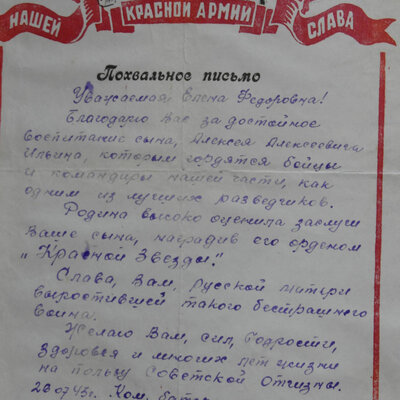 НАШЕЙ КРАСНОЙ АРМИИ СЛАВА
Похвальное письмо
Уважаемая Елена Федоровна!
Благодарю Вас за достойное
воспитание сына, Алексея Алексеевича
Ильина, которым гордятся бойцы
и командиры нашей части, как
одним из лучших разведчиков.
Родина высоко оценила заслуги
Ваше сына, наградив его орденом
„Красной Звезды."
Слава, Вам, Русской матери
вырастившей такого бестрашнего
воина.
Желаю Вам, сил, бодрости,
здоровья и многих лет жизни
на пользу Советской Отчизны.
26 07 43г. Ком.